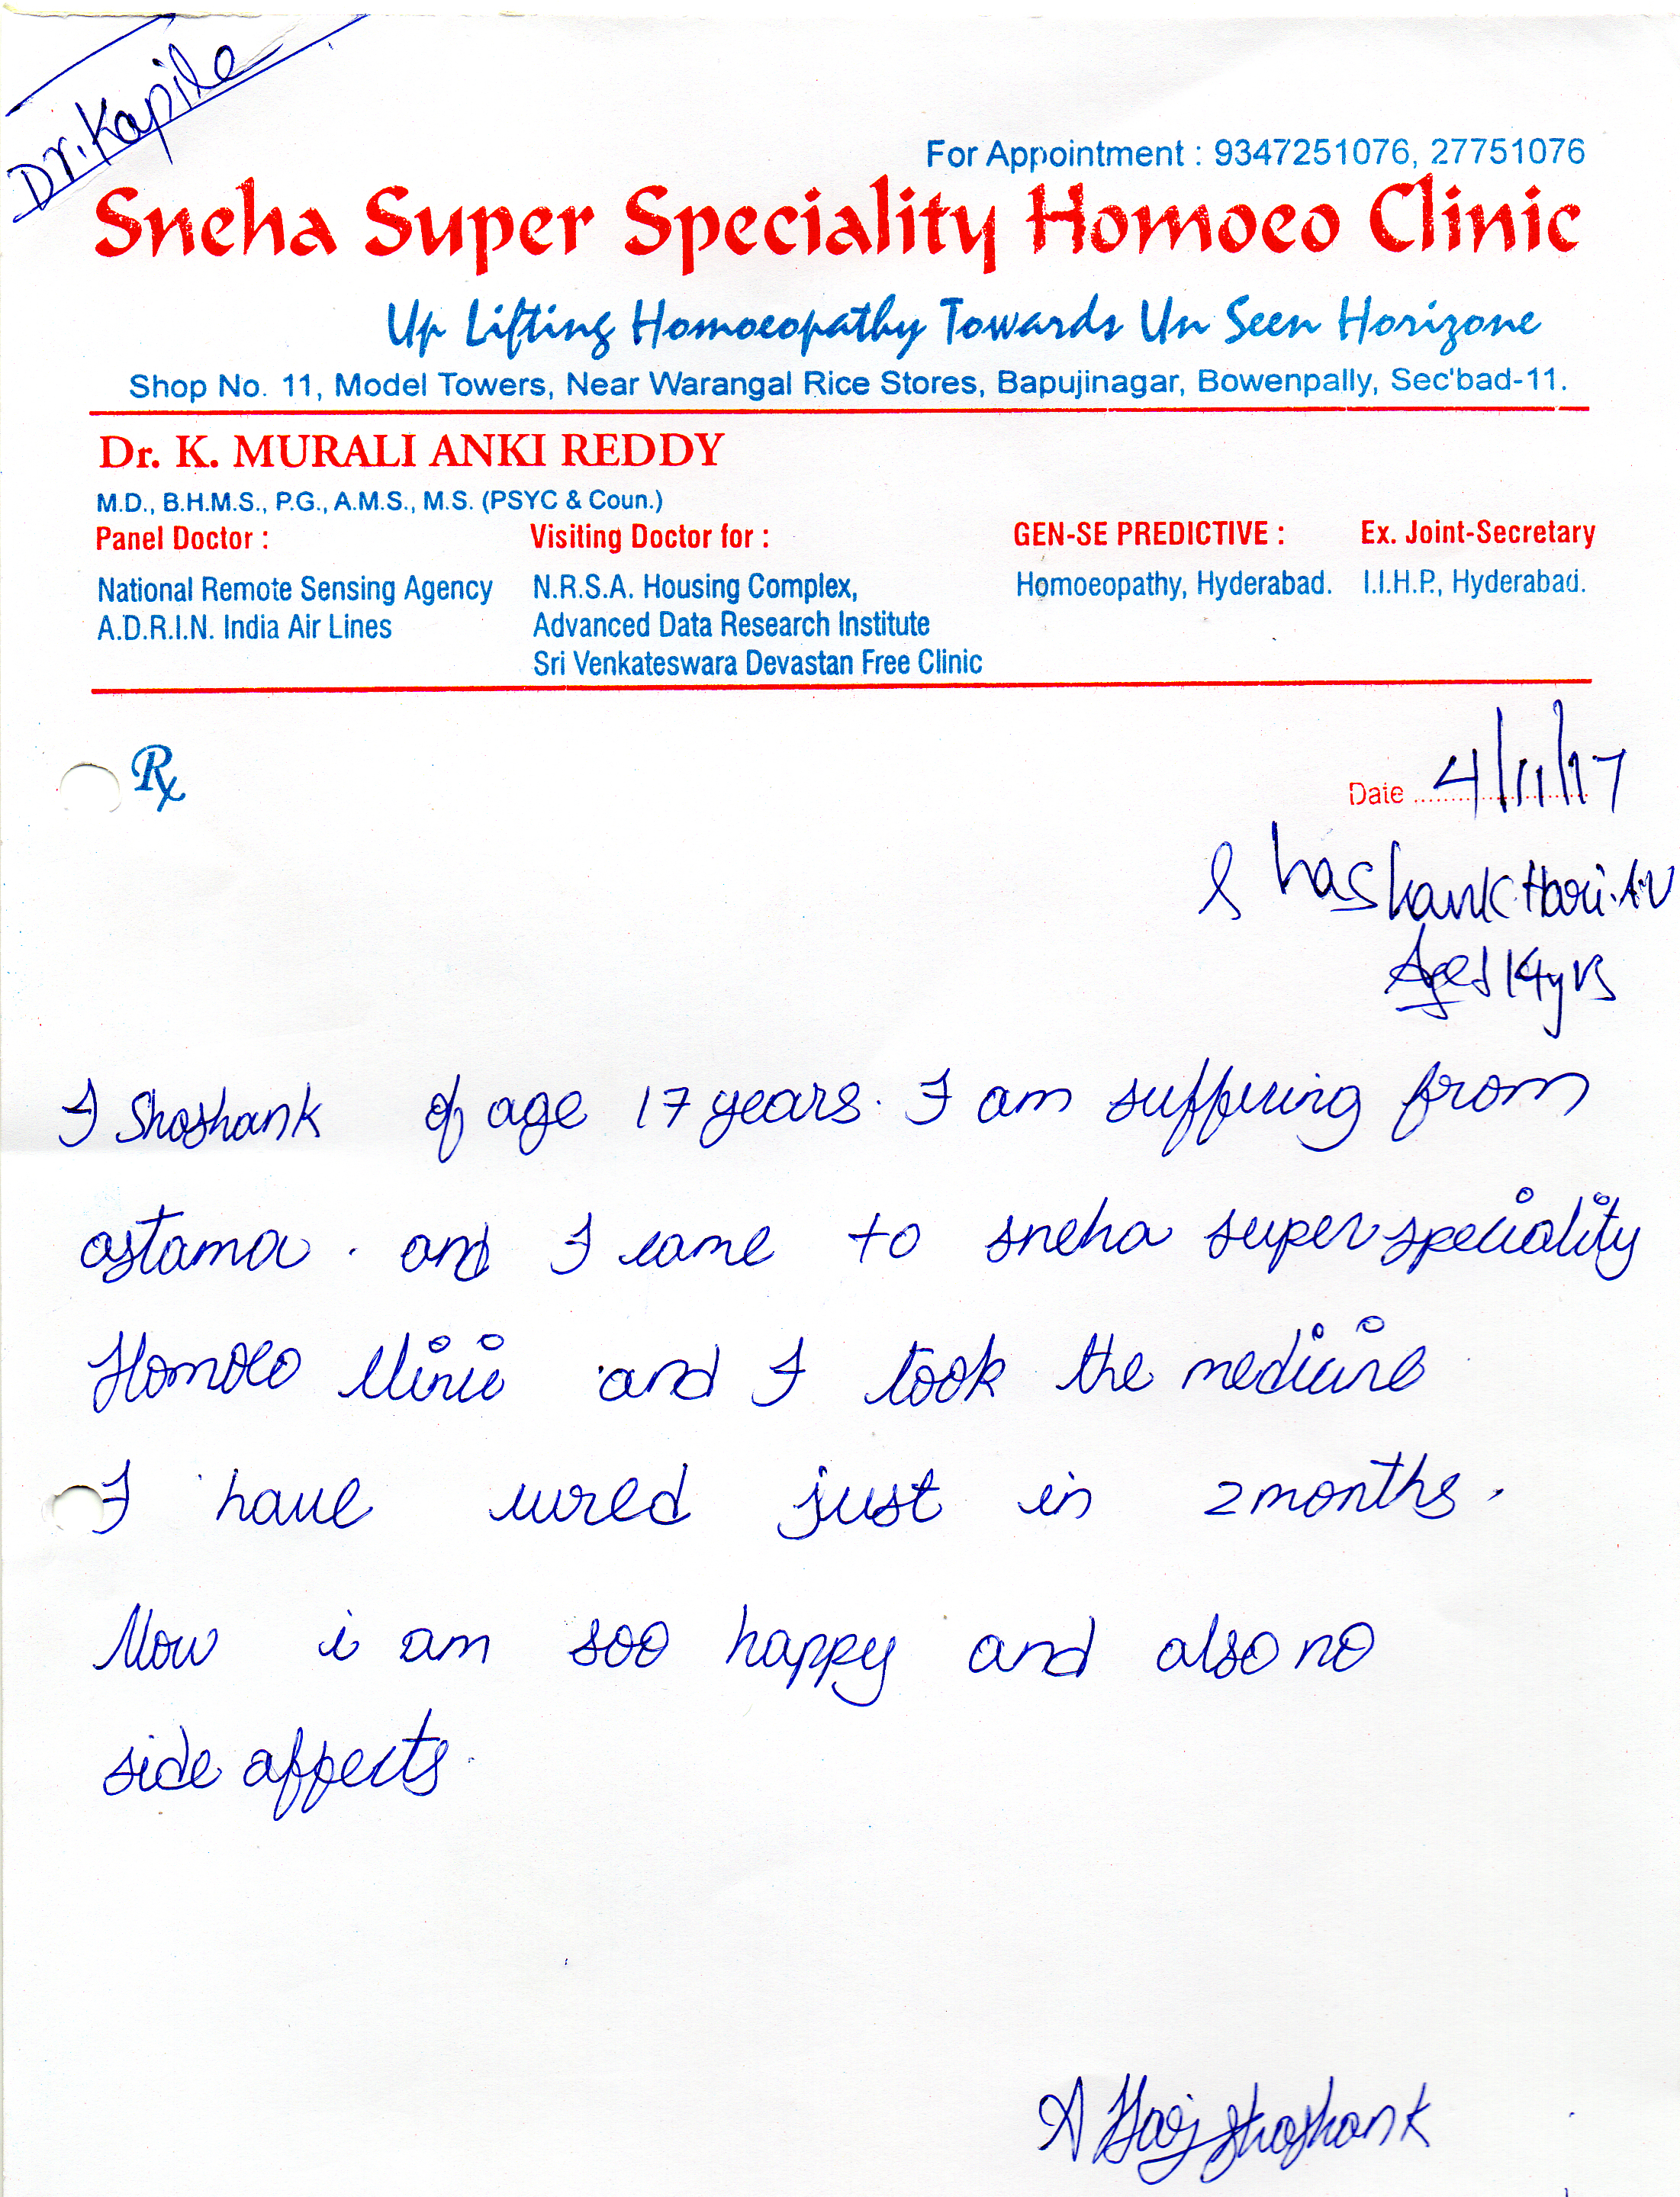 Dr. Kapila
For Appointment : 9347251076, 27751076
Sneha Super Speciality Homoeo Clinic
Up Lifting Homoeopathy Towards Un Seen Horizone
Shop No. 11, Model Towers, Near Warangal Rice Stores, Bapujinagar, Bowenpally, Sec'bad-11.
Dr. K. MURALI ANKI REDDY
M.D., B.H.M.S., P.G., A.M.S., M.S. (PSYC & Coun.)
Panel Doctor : Visiting Doctor for : GEN-SE PREDICTIVE : Ex. Joint-Secretary
National Remote Sensing Agency N.R.S.A. Housing Complex, Homoeopathy, Hyderabad. I.I.H.P., Hyderabad.
A.D.R.I.N. India Air Lines Advanced Data Research Institute
Sri Venkateswara Devastan Free Clinic
Rx
Date 4/11/17
Shashank Hari. A.V
Aged 14 yrs
I Shashank of age 17 years. I am suffuring from
astama. and I came to sneha super speciality
Homoeo clinic and I took the medicine
I have cured just in 2 months.
Now i am soo happy and also no
side affects.
A Hari Shashank